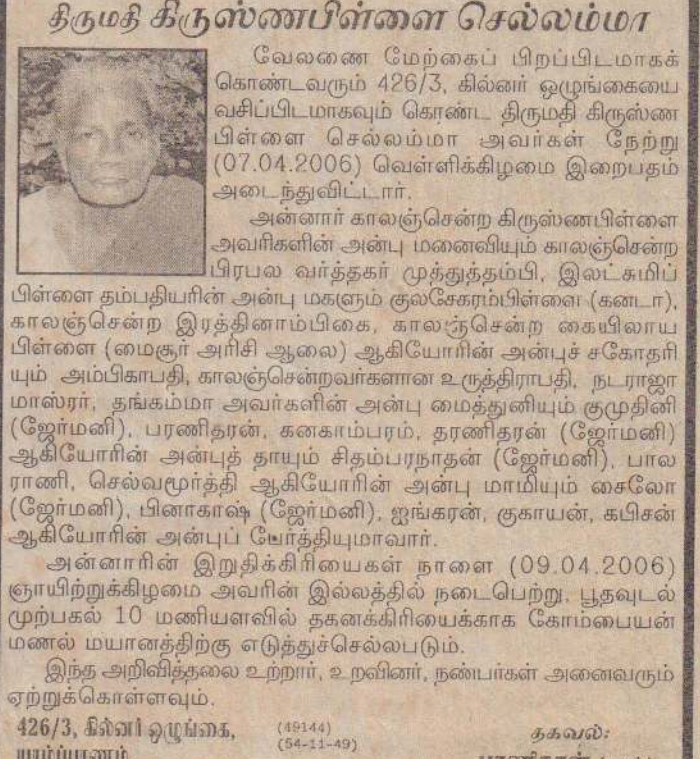 திருமதி கிருஸ்ணபிள்ளை செல்லம்மா
வேலணை மேற்கைப் பிறப்பிடமாகக்
கொண்டவரும் 426/3, கில்னர் ஒழுங்கையை
வசிப்பிடமாகவும் கொண்ட திருமதி கிருஸ்ண
பிள்ளை செல்லம்மா அவர்கள் நேற்று
(07.04.2006) வெள்ளிக்கிழமை இறைபதம்
அடைந்துவிட்டார்.
அன்னார் காலஞ்சென்ற கிருஸ்ணபிள்ளை
அவரிகளின் அன்பு மனைவியும் காலஞ்சென்ற
பிரபல வர்த்தகர் முத்துத்தம்பி, இலட்சுமிப்
பிள்ளை தம்பதியரின் அன்பு மகளும் குலசேகரம்பிள்ளை (கனடா),
காலஞ்சென்ற இரத்தினாம்பிகை, காலஞ்சென்ற கையிலாய
பிள்ளை (மைசூர் அரிசி ஆலை) ஆகியோரின் அன்புச் சகோதரி
யும் அம்பிகாபதி, காலஞ்சென்றவர்களான உருத்திராபதி, நடராஜா
மாஸ்ரர், தங்கம்மா அவர்களின் அன்பு மைத்துனியும் குமுதினி
(ஜேர்மனி), பரணிதரன், கனகாம்பரம், தரணிதரன் (ஜேர்மனி)
ஆகியோரின் அன்புத் தாயும் சிதம்பரநாதன் (ஜேர்மனி), பால
ராணி, செல்வமூர்த்தி ஆகியோரின் அன்பு மாமியும் சைலோ
(ஜேர்மனி), பினாகாஷ் (ஜேர்மனி), ஐங்கரன், குகாயன், கபிசன்
ஆகியோரின் அன்புப் பேர்த்தியுமாவார்.
அன்னாரின் இறுதிக்கிரியைகள் நாளை (09.04.2006)
ஞாயிற்றுக்கிழமை அவரின் இல்லத்தில் நடைபெற்று, பூதவுடல்
முற்பகல் 10 மணியளவில் தகனக்கிரியைக்காக கோம்பையன்
மணல் மயானத்திற்கு எடுத்துச்செல்லபடும்.
இந்த அறிவித்தலை உற்றார், உறவினர், நண்பர்கள் அனைவரும்
ஏற்றுக்கொள்ளவும்.
426/3, கில்னர் ஒழுங்கை, (49144) தகவல்:
யாழ்ப்பாணம் (54-11-49)